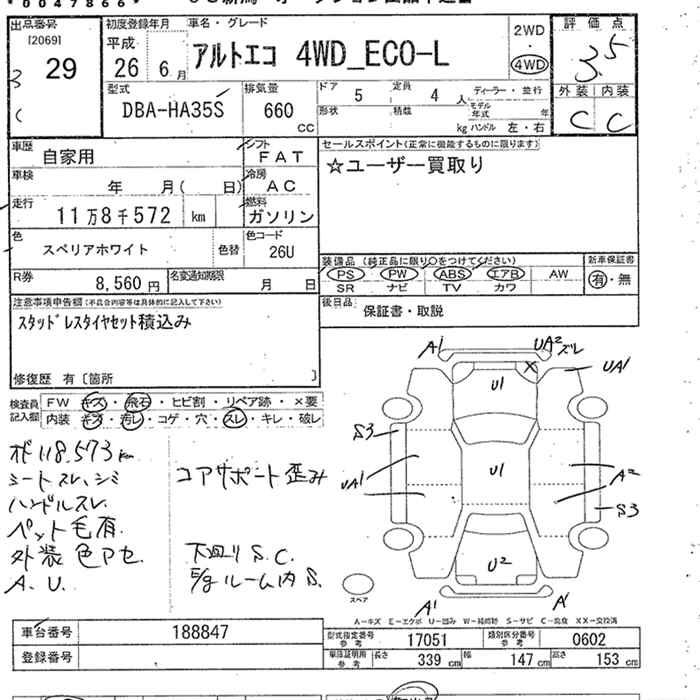 出品番号
[2069]
29
3
C
初度登録年月
平成
26 6月
車名・グレード
アルトエコ 4WD_ECO-L
2WD
4WD
評価点
3.5
外装 内装
C C
型式
DBA-HA35S
排気量
660
CC
ドア
5
定員
4
人
ディーラー・並行
形状
積載
kg
モデル年式
年
ハンドル 左・右
車歴
自家用
シフト
FAT
車検
年 月( 日)
冷房
AC
走行
11万8千572
km
燃料
ガソリン
色
スペリアホワイト
色替
色コード
26U
R券
8,560円
名変通知期限
月 日
セールスポイント(正常に機能するものに限ります)
☆ユーザー買取り
装備品 (純正品に限り○をつけてください)
PS PW ABS エアB AW
SR ナビ TV カワ
新車保証書
有・無
後日品
保証書・取説
注意事項申告欄(不具合内容等は具体的に記入して下さい)
スタッドレスタイヤセット積込み
修復歴 有〔箇所 〕
検査員
記入欄
FW キズ・飛石・ヒビ割・リペア跡・×要
内装 キズ・汚レ・コゲ・穴・スレ・キレ・破レ
118.573km
シートスレ、シミ
ハンドルスレ.
ペット毛有.
外装色アセ.
A.U.
コアサポート歪み
下廻りS.C.
E/gルーム内S.
A1
UA2 ズレ
UA1
U1
X
S3
UA1
U1
A2
S3
U2
A1
A1
スペア
A-キズ E-エクボ U-凹み W-補修跡 S-サビ C-腐食 XX-交換済
車台番号
188847
登録番号
型式指定番号
参考
17051
類別区分番号
参考
0602
車庫証明用
参考
長さ
339 cm
幅
147 cm
高さ
153 cm